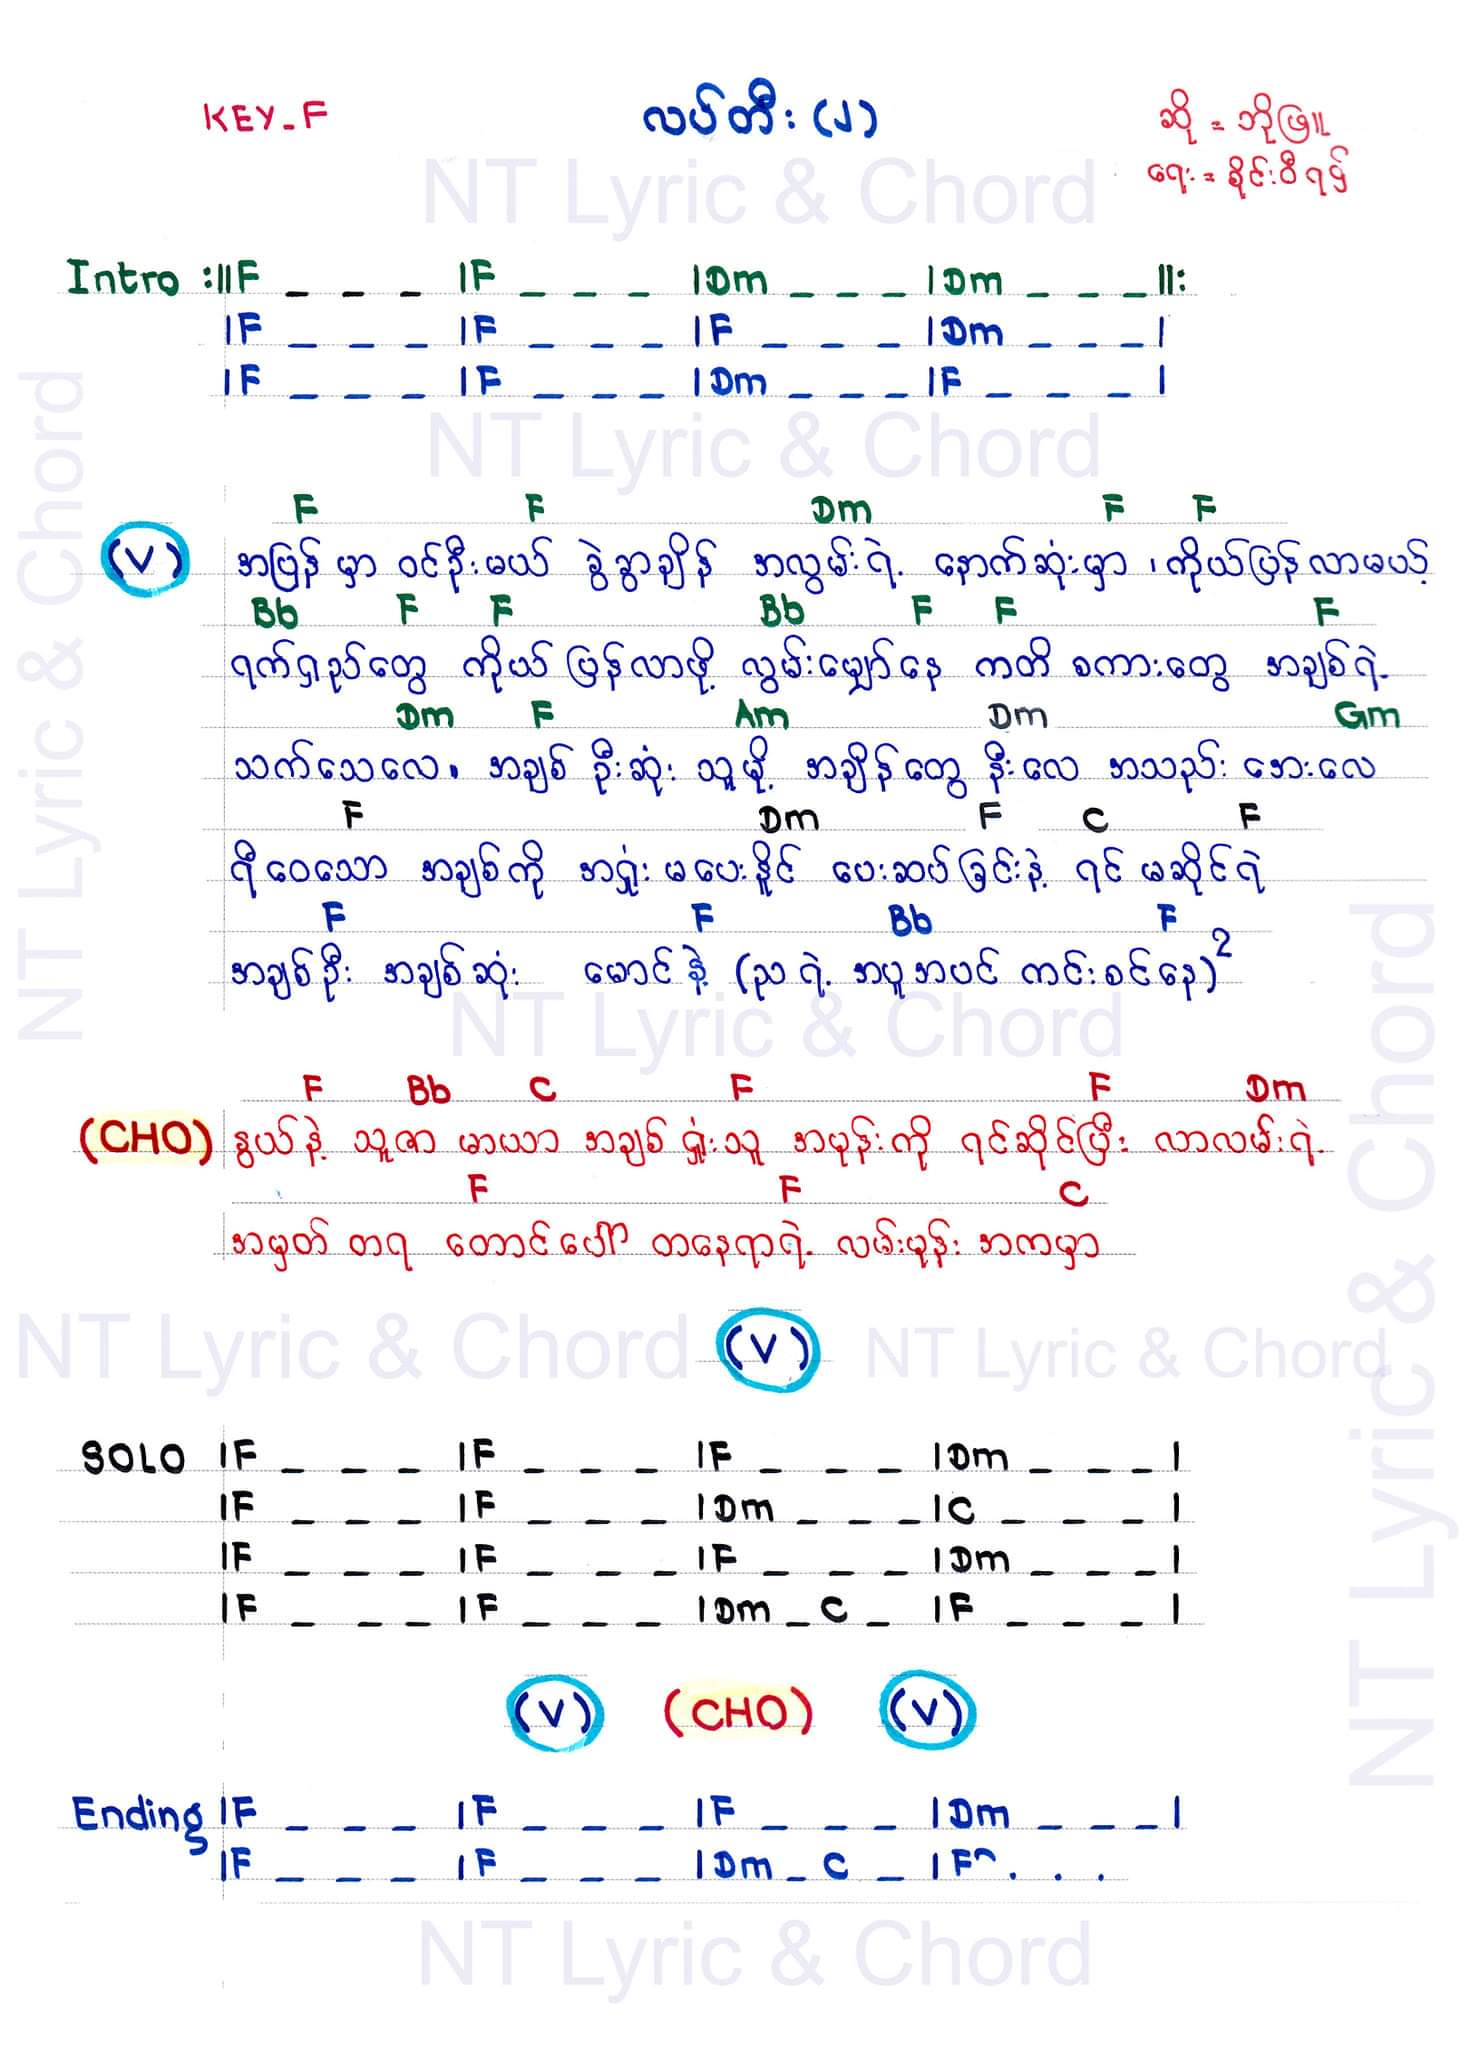 KEY-F
လပ်တီး (၂)
ဆို = ဘိုဖြူ
ရေး = စိုင်းဝီရဌ်
NT Lyric & Chord
Intro :||F _ _ _ |F _ _ _ |Dm _ _ _ |Dm _ _ _ ||:
|F _ _ _ |F _ _ _ |F _ _ _ |Dm _ _ _ |
|F _ _ _ |F _ _ _ |Dm _ _ _ |F _ _ _ |
NT Lyric & Chord
NT Lyric & Chord
F F Dm F F
(V) အပြန် မှာ ဝင်ဦးမယ် ခွဲခွာချိန် အလွမ်းရဲ့ နောက်ဆုံးမှာ ၊ ကိုယ်ပြန်လာမယ့်
Bb F F Bb F F F
ရက်ရှည်တွေ ကိုယ် ပြန်လာဖို့ လွမ်းမျှော်နေ ကတိ စကားတွေ အချစ်ရဲ့
Dm F Am Dm Gm
သက်သေလေ။ အချစ် ဦးဆုံး သူမို့ အချိန်တွေ နီးလေ အသည်း အေးလေ
F Dm F C F
ရီဝေသော အချစ်ကို အရှုံး မပေးနိူင် ပေးဆပ်ခြင်းနဲ့ ရင် မဆိုင်ရဲ
F F Bb F
အချစ်ဦး အချစ်ဆုံး မောင်နဲ့ (ညရဲ့ အပူအပင် ကင်းစင်နေ)²
NT Lyric & Chord
F Bb C F F Dm
(CHO) နွယ်နဲ့ သူဇာ မာယာ အချစ် ရှုံးသူ အမုန်းကို ရင်ဆိုင်ပြီး လာလမ်းရဲ့
F F C
အမှတ် တရ တောင်ပေါ် တနေရာရဲ့ လမ်းမုန်း အကမှာ
NT Lyric & Chord
(V)
NT Lyric & Chord
NT Lyric & Chord
SOLO |F _ _ _ |F _ _ _ |F _ _ _ |Dm _ _ _ |
|F _ _ _ |F _ _ _ |Dm _ _ _ |C _ _ _ |
|F _ _ _ |F _ _ _ |F _ _ _ |Dm _ _ _ |
|F _ _ _ |F _ _ _ |Dm _ C _ |F _ _ _ |
(V) (CHO) (V)
Ending |F _ _ _ |F _ _ _ |F _ _ _ |Dm _ _ _ |
|F _ _ _ |F _ _ _ |Dm _ C _ |F⌒ . . .
NT Lyric & Chord